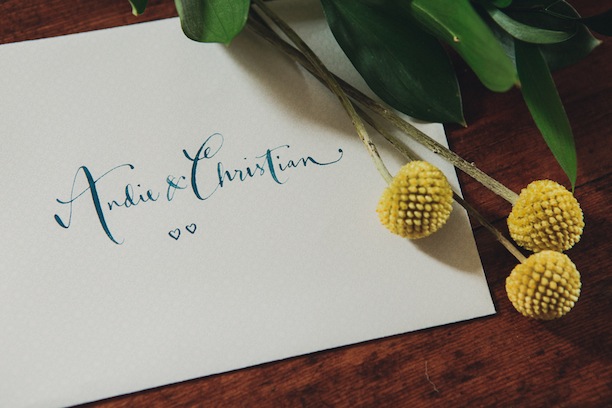 Andie & Christian